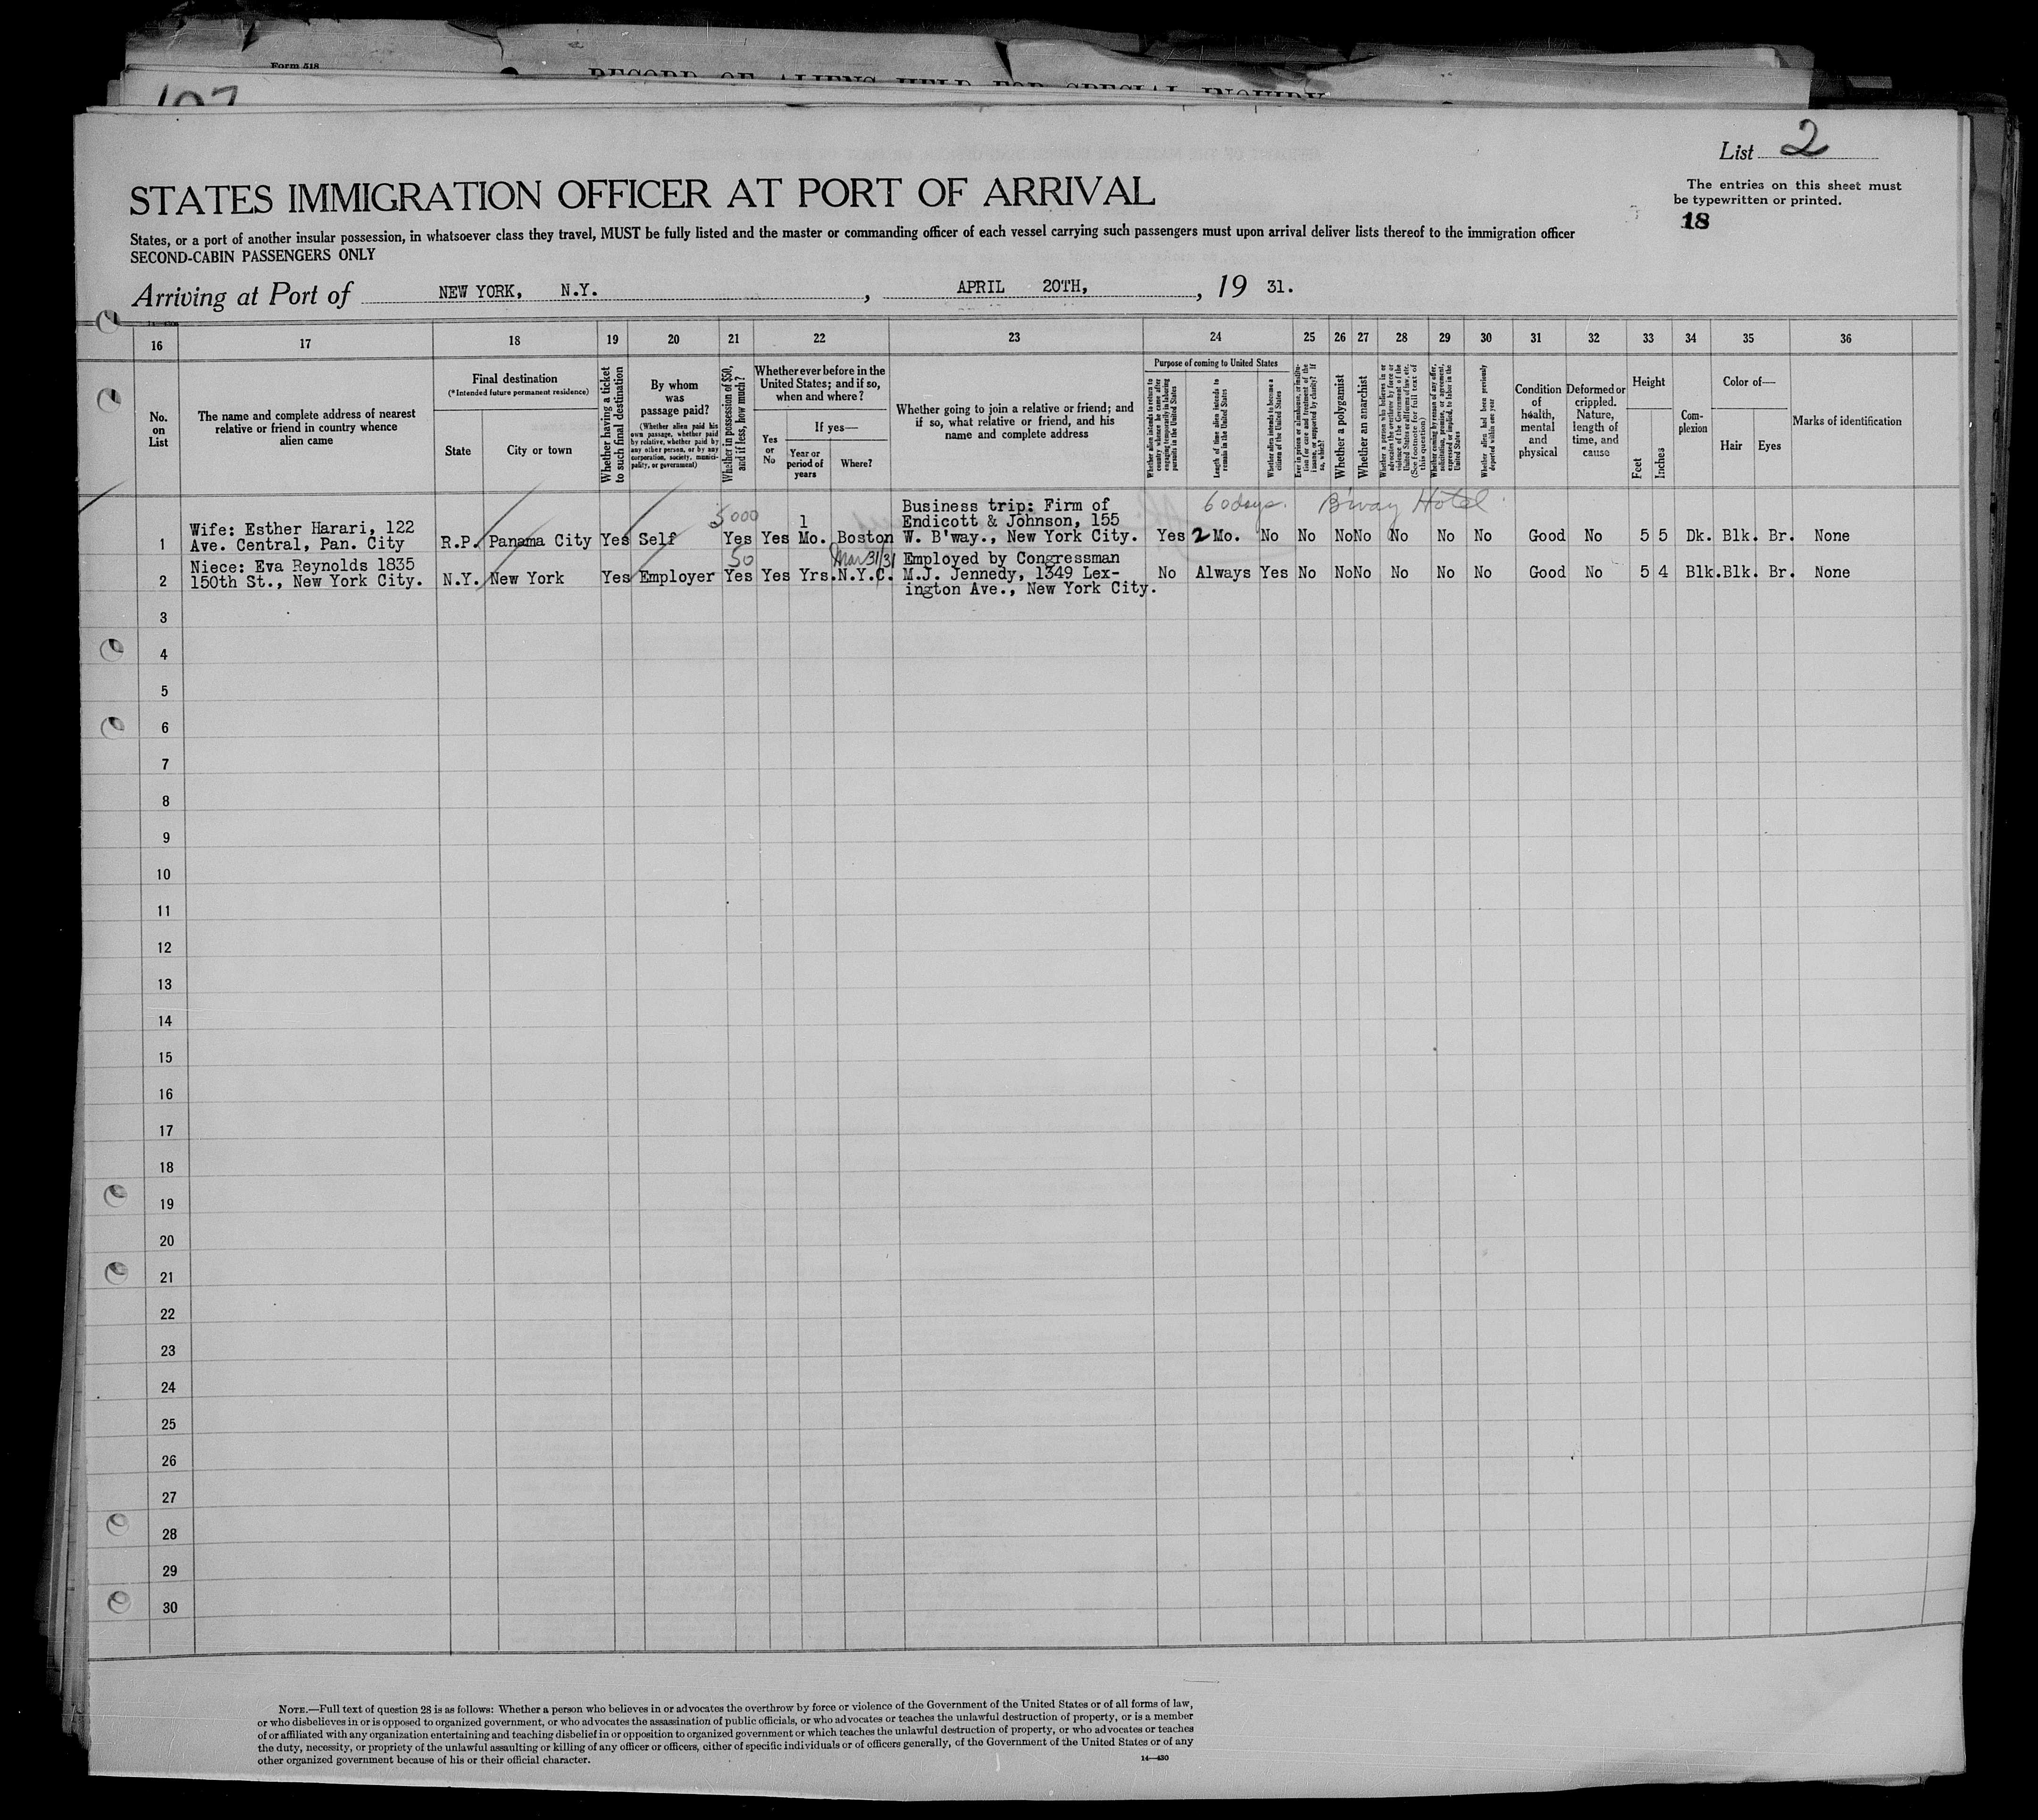 Form 518
RECORD OF ALIENS HELD FOR SPECIAL INQUIRY
107
List 2
STATES IMMIGRATION OFFICER AT PORT OF ARRIVAL
The entries on this sheet must
be typewritten or printed.
18
States, or a port of another insular possession, in whatsoever class they travel, MUST be fully listed and the master or commanding officer of each vessel carrying such passengers must upon arrival deliver lists thereof to the immigration officer
SECOND-CABIN PASSENGERS ONLY
Arriving at Port of NEW YORK, N.Y. , APRIL 20TH, , 19 31.
16 17 18 19 20 21 22 23 24 25 26 27 28 29 30 31 32 33 34 35 36
No.
on
List
The name and complete address of nearest
relative or friend in country whence
alien came
Final destination
(*Intended future permanent residence)
State
City or town
Whether having a ticket
to such final destination
By whom
was
passage paid?
(Whether alien paid his
own passage, whether paid
by relative, whether paid by
any other person, or by any
corporation, society, munici-
pality, or government)
Whether in possession of $50,
and if less, how much?
Whether ever before in the
United States; and if so,
when and where?
Yes
or
No
If yes—
Year or
period of
years
Where?
Whether going to join a relative or friend; and
if so, what relative or friend, and his
name and complete address
Purpose of coming to United States
Whether alien intends to return to
country whence he came after
engaging temporarily in laboring
pursuits in the United States
Length of time alien intends to
remain in the United States
Whether alien intends to become a
citizen of the United States
Ever in prison or almshouse, or institu-
tion for care and treatment of the
insane, or supported by charity? If
so, which?
Whether a polygamist
Whether an anarchist
Whether a person who believes in or
advocates the overthrow by force or
violence of the Government of the
United States or all forms of law, etc.
(See footnote for full text of
this question)
Whether coming by reason of any offer,
solicitation, promise, or agreement,
expressed or implied, to labor in the
United States
Whether alien had been previously
deported within one year
Condition
of
health,
mental
and
physical
Deformed or
crippled.
Nature,
length of
time, and
cause
Height
Feet
Inches
Com-
plexion
Color of—
Hair
Eyes
Marks of identification
5000 Business trip: Firm of 60 days. B'way Hotel
Wife: Esther Harari, 122 1 Endicott & Johnson, 155
1 Ave. Central, Pan. City R.P. Panama City Yes Self Yes Yes Mo. Boston W. B'way., New York City. Yes 2 Mo. No No No No No No No Good No 5 5 Dk. Blk. Br. None
Niece: Eva Reynolds 1835 50 Mar 31/31 Employed by Congressman
2 150th St., New York City. N.Y. New York Yes Employer Yes Yes Yrs. N.Y.C. M.J. Jennedy, 1349 Lex- No Always Yes No No No No No No Good No 5 4 Blk. Blk. Br. None
ington Ave., New York City.
3
4
5
6
7
8
9
10
11
12
13
14
15
16
17
18
19
20
21
22
23
24
25
26
27
28
29
30
NOTE.—Full text of question 28 is as follows: Whether a person who believes in or advocates the overthrow by force or violence of the Government of the United States or of all forms of law,
or who disbelieves in or is opposed to organized government, or who advocates the assassination of public officials, or who advocates or teaches the unlawful destruction of property, or is a member
of or affiliated with any organization entertaining and teaching disbelief in or opposition to organized government or which teaches the unlawful destruction of property, or who advocates or teaches
the duty, necessity, or propriety of the unlawful assaulting or killing of any officer or officers, either of specific individuals or of officers generally, of the Government of the United States or of any
other organized government because of his or their official character.
14—430